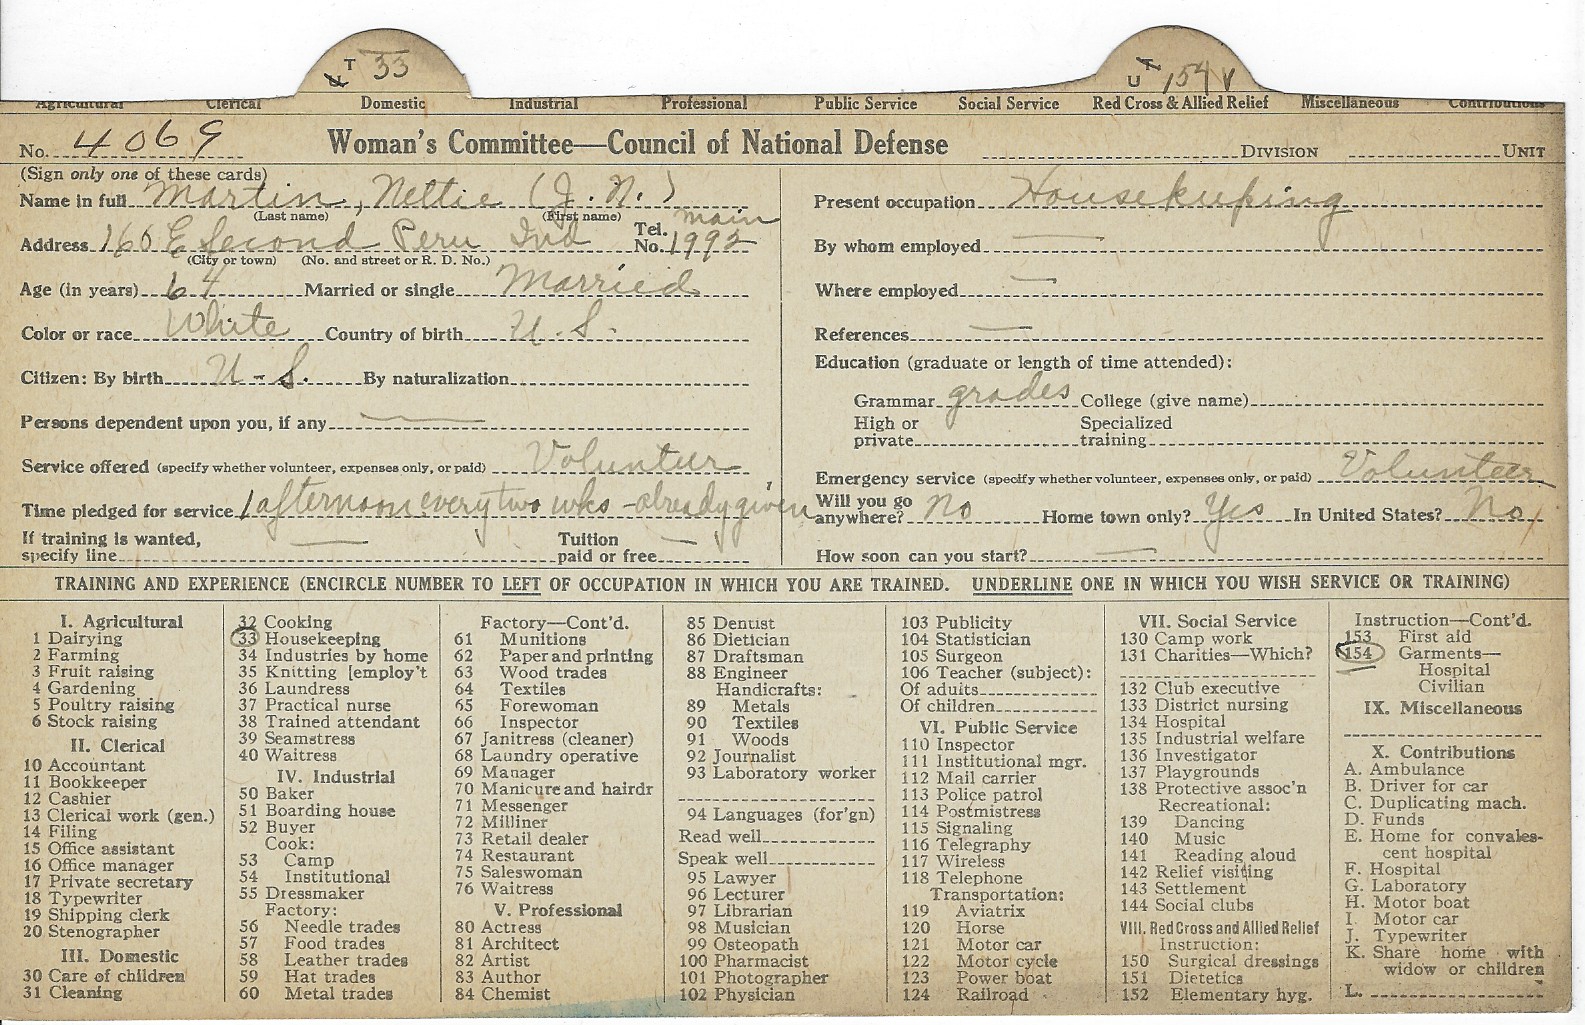 T 33
U T 154 v
Agricultural Clerical Domestic Industrial Professional Public Service Social Service Red Cross & Allied Relief Miscellaneous Contributions
No. 4069 Woman's Committee—Council of National Defense DIVISION UNIT
(Sign only one of these cards)
Name in full Martin, Nettie (J. N.)
(Last name) (First name)
Address 160 E Second Peru Ind Tel. No. Main 1992
(City or town) (No. and street or R. D. No.)
Age (in years) 64 Married or single Married
Color or race White Country of birth U. S.
Citizen: By birth U - S. By naturalization
Persons dependent upon you, if any —
Service offered (specify whether volunteer, expenses only, or paid) Volunteer
Time pledged for service 1 afternoon every two wks - already given
If training is wanted, specify line — Tuition paid or free —
Present occupation Housekeeping
By whom employed —
Where employed —
References —
Education (graduate or length of time attended):
Grammar grades College (give name)
High or private Specialized training
Emergency service (specify whether volunteer, expenses only, or paid) Volunteer
Will you go anywhere? No Home town only? Yes In United States? No
How soon can you start? —
TRAINING AND EXPERIENCE (ENCIRCLE NUMBER TO LEFT OF OCCUPATION IN WHICH YOU ARE TRAINED. UNDERLINE ONE IN WHICH YOU WISH SERVICE OR TRAINING)
I. Agricultural
1 Dairying
2 Farming
3 Fruit raising
4 Gardening
5 Poultry raising
6 Stock raising
II. Clerical
10 Accountant
11 Bookkeeper
12 Cashier
13 Clerical work (gen.)
14 Filing
15 Office assistant
16 Office manager
17 Private secretary
18 Typewriter
19 Shipping clerk
20 Stenographer
III. Domestic
30 Care of children
31 Cleaning
32 Cooking
33 Housekeeping
34 Industries by home
35 Knitting [employ't
36 Laundress
37 Practical nurse
38 Trained attendant
39 Seamstress
40 Waitress
IV. Industrial
50 Baker
51 Boarding house
52 Buyer
Cook:
53 Camp
54 Institutional
55 Dressmaker
Factory:
56 Needle trades
57 Food trades
58 Leather trades
59 Hat trades
60 Metal trades
Factory—Cont'd.
61 Munitions
62 Paper and printing
63 Wood trades
64 Textiles
65 Forewoman
66 Inspector
67 Janitress (cleaner)
68 Laundry operative
69 Manager
70 Manicure and hairdr
71 Messenger
72 Milliner
73 Retail dealer
74 Restaurant
75 Saleswoman
76 Waitress
V. Professional
80 Actress
81 Architect
82 Artist
83 Author
84 Chemist
85 Dentist
86 Dietician
87 Draftsman
88 Engineer
Handicrafts:
89 Metals
90 Textiles
91 Woods
92 Journalist
93 Laboratory worker
94 Languages (for'gn)
Read well
Speak well
95 Lawyer
96 Lecturer
97 Librarian
98 Musician
99 Osteopath
100 Pharmacist
101 Photographer
102 Physician
103 Publicity
104 Statistician
105 Surgeon
106 Teacher (subject):
Of adults
Of children
VI. Public Service
110 Inspector
111 Institutional mgr.
112 Mail carrier
113 Police patrol
114 Postmistress
115 Signaling
116 Telegraphy
117 Wireless
118 Telephone
Transportation:
119 Aviatrix
120 Horse
121 Motor car
122 Motor cycle
123 Power boat
124 Railroad
VII. Social Service
130 Camp work
131 Charities—Which?
132 Club executive
133 District nursing
134 Hospital
135 Industrial welfare
136 Investigator
137 Playgrounds
138 Protective assoc'n
Recreational:
139 Dancing
140 Music
141 Reading aloud
142 Relief visiting
143 Settlement
144 Social clubs
VIII. Red Cross and Allied Relief
Instruction:
150 Surgical dressings
151 Dietetics
152 Elementary hyg.
Instruction—Cont'd.
153 First aid
154 Garments—
Hospital
Civilian
IX. Miscellaneous
X. Contributions
A. Ambulance
B. Driver for car
C. Duplicating mach.
D. Funds
E. Home for convales-
cent hospital
F. Hospital
G. Laboratory
H. Motor boat
I. Motor car
J. Typewriter
K. Share home with
widow or children
L.